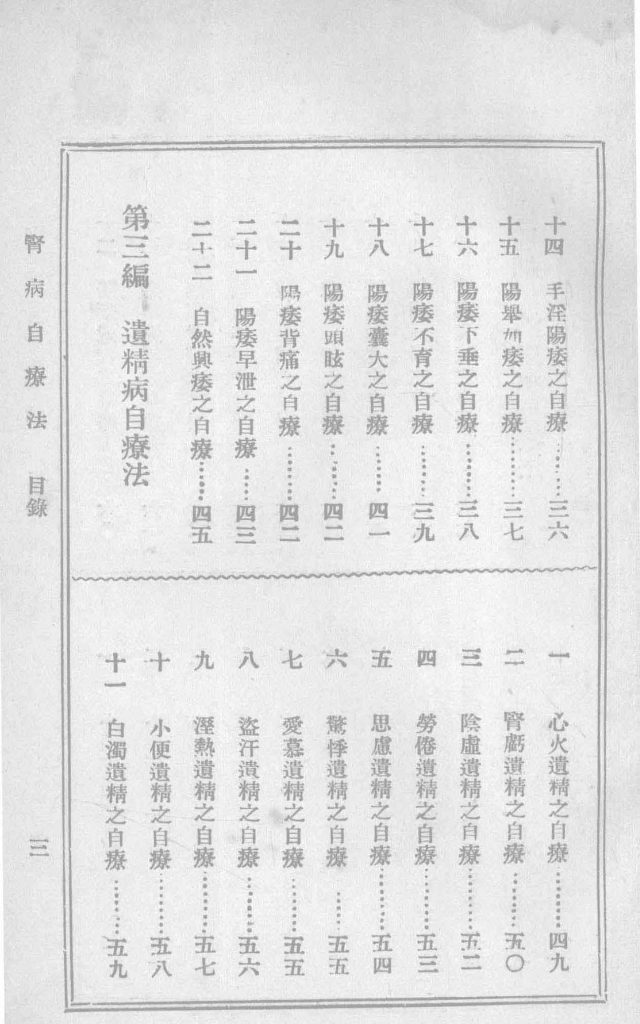 十四 手淫陽痿之自療……三六
十五 陽舉如痿之自療……三七
十六 陽痿下垂之自療……三八
十七 陽痿不育之自療……三九
十八 陽痿囊大之自療……四一
十九 陽痿頭眩之自療……四二
二十 陽痿背痛之自療……四二
二十一 陽痿早泄之自療……四三
二十二 自然興痿之自療……四五
第三編 遺精病自療法
一 心火遺精之自療……四九
二 腎虧遺精之自療……五〇
三 陰虛遺精之自療……五二
四 勞倦遺精之自療……五三
五 思慮遺精之自療……五四
六 驚悸遺精之自療……五五
七 愛慕遺精之自療……五五
八 盜汗遺精之自療……五六
九 溼熱遺精之自療……五七
十 小便遺精之自療……五八
十一 白濁遺精之自療……五九
腎病自療法 目錄 三